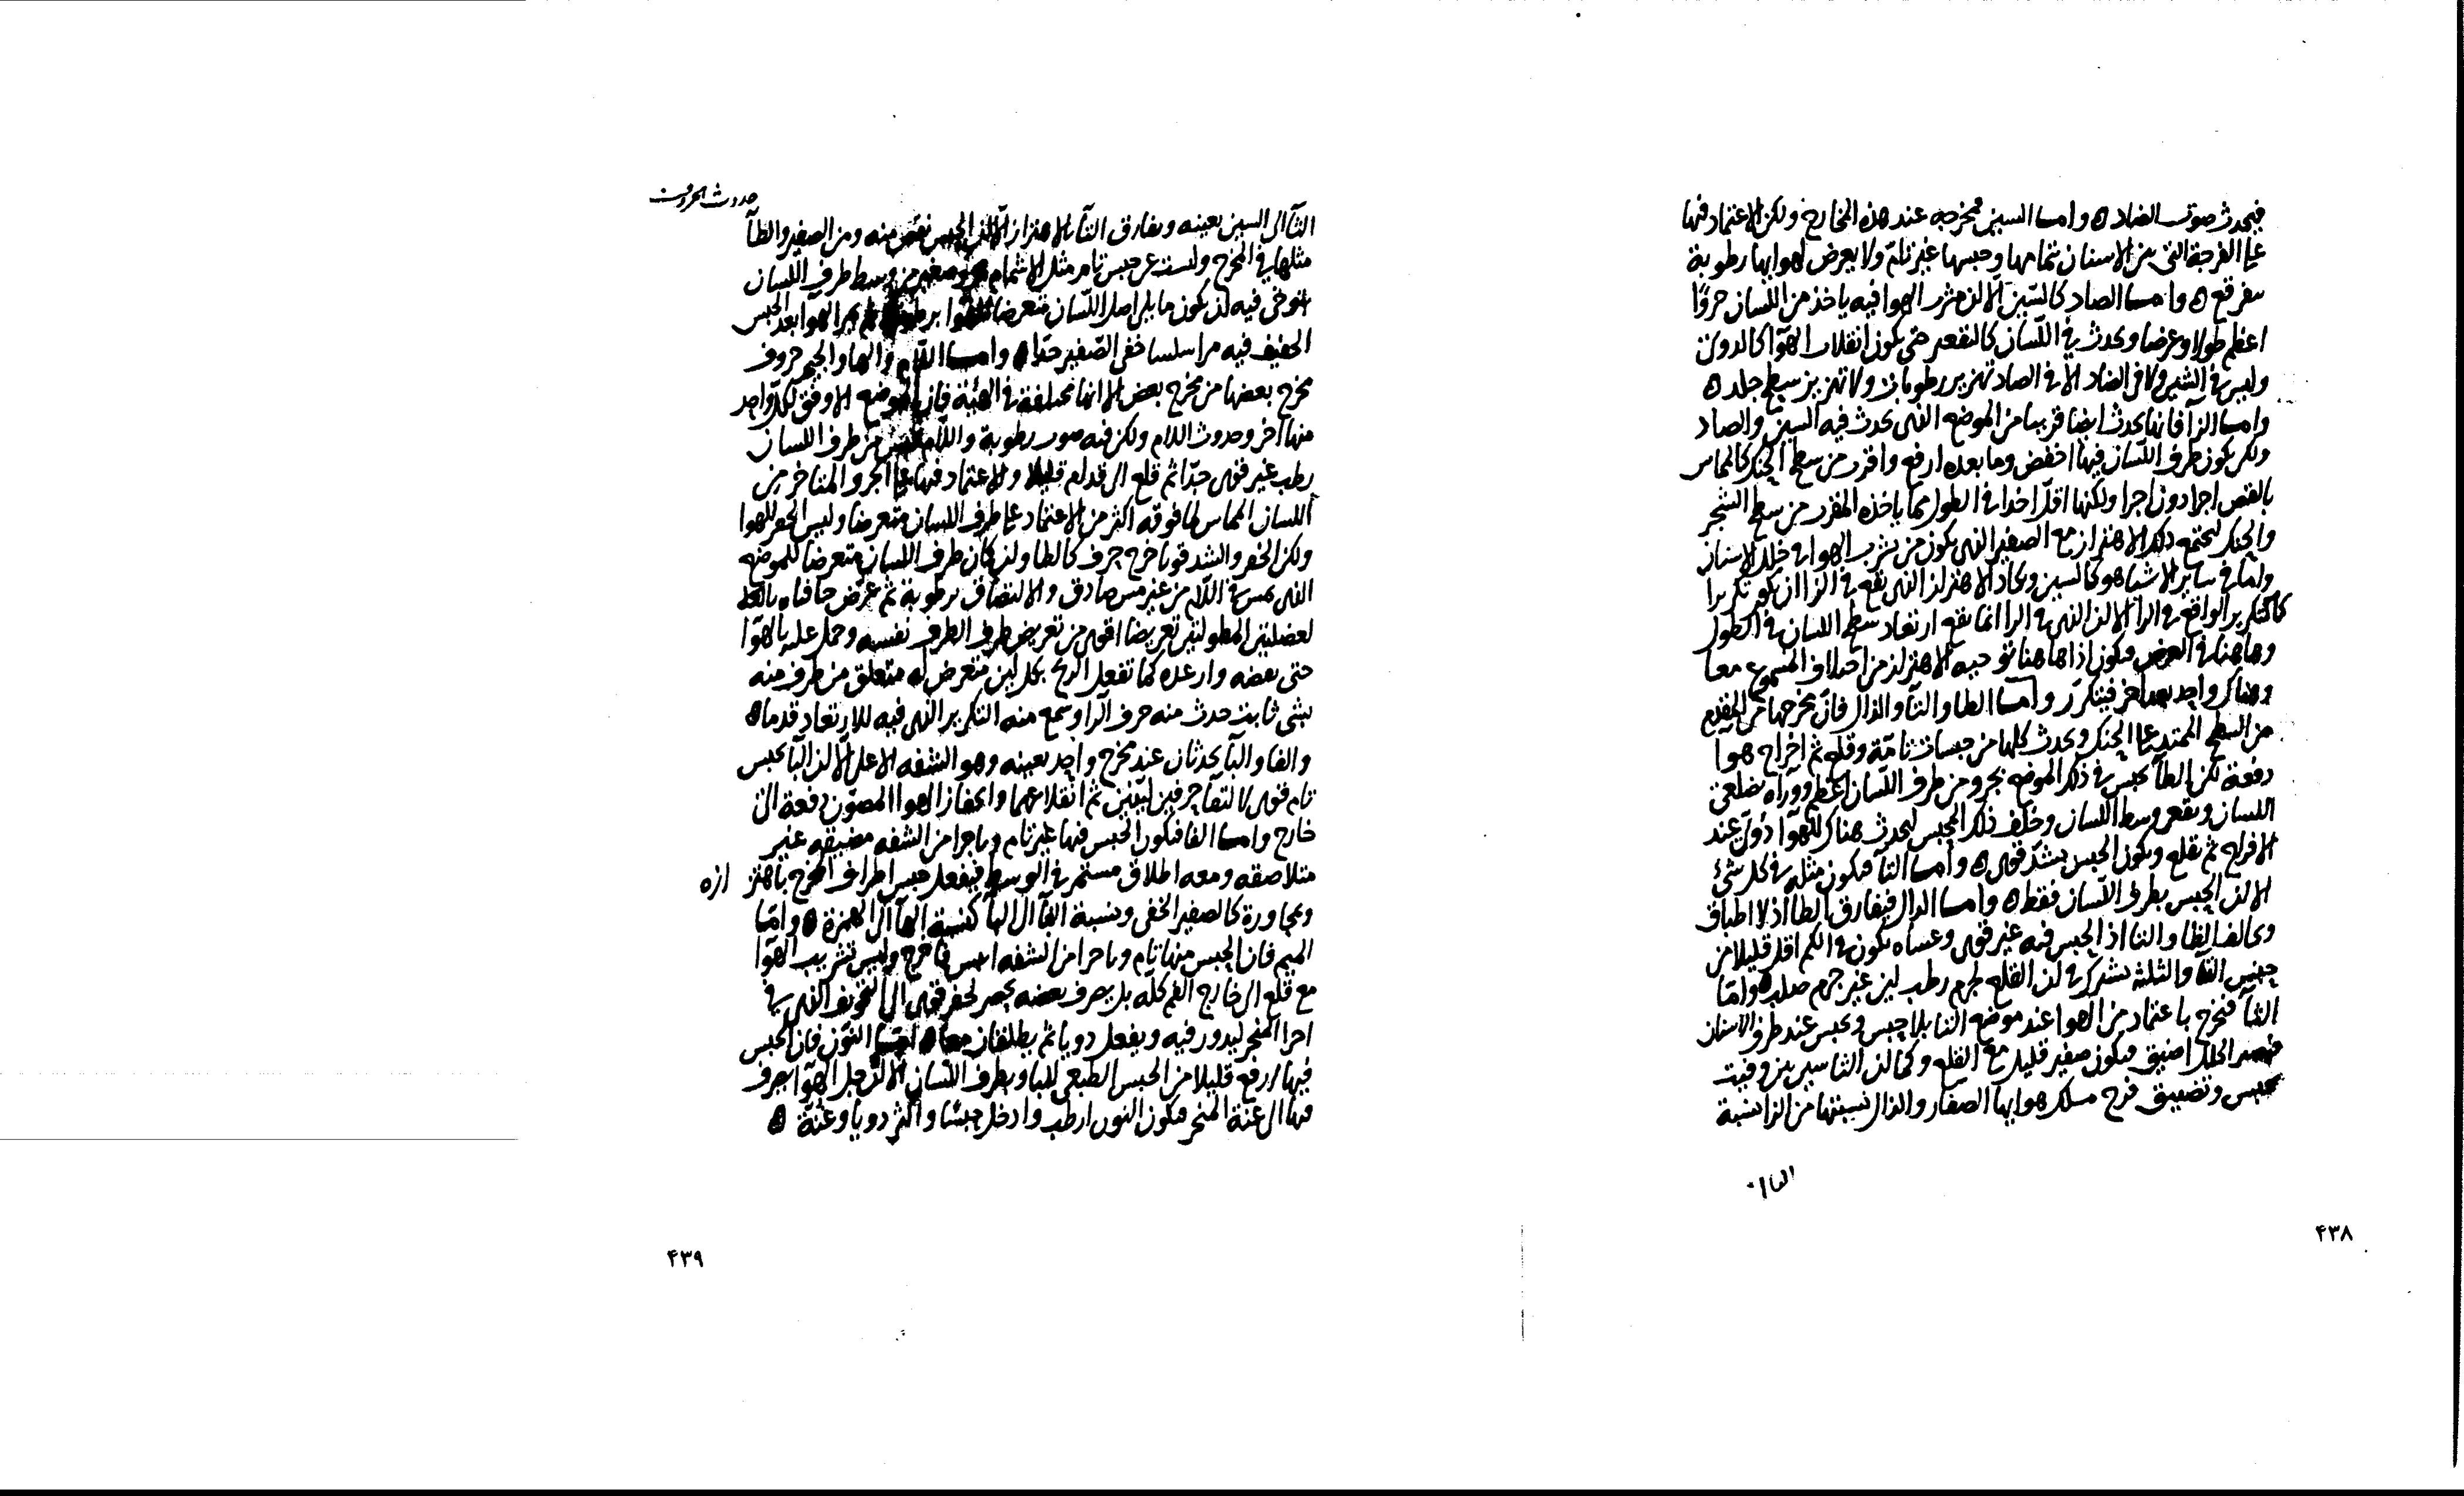 فيحدث صوت الضاد ه واما السين فمخرجه عند هذه المخارج ولكن الاعتماد فيها
على الفرجة التى بين الاسنان تمامها وحبسها غير تام ولا يعرض لهوايها رطوبة
ه واما الصاد كالسين الا ان الهوا فيه ياخذ من اللسان جزوا
اعظم طولا وعرضا ويحدث فى اللسان كالتقعر حتى يكون انقلات الهوا كالدوى
وليس فى الشين ولا فى الضاد الا فى الصاد تهزيز رطوبات ولا تهزيز سطح جلد ه
واما الزا فانها يحدث ايضا قريبا من الموضع الذى يحدث فيه السين والصاد
ولكن يكون طرف اللسان فيها اخفض وما بعده ارفع واقرب من سطح الحنك كالمماس
بالعض اجزا دون اجزا ولكنها اقل اخذا فى الطول مما ياخذه المقرب من سطح الشجر
والحنك ليجتمع ذلك الاهتزاز مع الصفير الذى يكون من تسرب الهوا فى خلل الاسنان
واما فى ساير الاشيا هو كالسين وكاد الاهتزاز الذى يقع فى الزا ان يكون تكريرا
كالتكرير الواقع فى الرا الا ان الذى فى الرا انما يقع ارتعاد سطح اللسان فى الطول
وهاهنا فى العرض فيكون اذا هاهنا توجبه الاهتزاز من اختلاف المسموع معا
وهناك واحد بعد اخر فيتكرر واما الطا والتا والدال فان مخرجها من المقدم
من السطح الممتد على الحنك ويحدث كلها من حبسات تامة وقلع ثم اخراج هوا
دفعة لكن الطا يحبس فى ذلك الموضع بجزو من طرف اللسان اعظم ووراه بضلعى
اللسان ويقعر وسط اللسان وخلف ذلك المحبس ليحدث هناك للهوا دوى عند
الاخراج ثم يقلع ويكون الحبس بشد قوى ه واما التا فيكون مثله فى كل شئ
الا ان الحبس بطرف اللسان فقط ه واما الدال فيفارق الطا اذ لا اطباق
ويخالف الطا والتا اذ الحبس فيه غير قوى وعساه يكون فى الكم اقل قليلا من
حبس التا والثلثة تشترك فى ان القلع لجرم رطب لين غير جرم صلب ه واما
الثا فتخرج باعتماد من الهوا عند موضع التا بلا حبس ويحبس عند طرف الاسنان
فيصير الخلل اضيق فيكون صفير قليل مع القلع وكان الثا سين
بحبس وتضييق فرج مسلك هوايها الصفار والذال نسبتها من الزا نسبة
الثا
٤٣٨
حدوث الحروف
الثا الى السين بعينه ويفارق الثا بالاهتزاز الا ان الحبس نقص منه ومن الصفير والظا
مثلها فى المخرج وليست عن حبس تام مثل الاشمام وسط طرف اللسان
تتوخى فيه ان يكون ما يلى اصل اللسان متعرضا للهوا برطوبة ثم يمر الهوا بعد الحبس
الخفيف فيه مرا سلسا خفى الصفير جدا ه واما اللام والها والجيم حروف
مخرج بعضها من مخرج بعض الا انها مختلفة فى الهئية فان الموضع الاوفق لكل واحد
منها اخر وحدوث اللام ولكن فيه رطوبة واللام من طرف اللسان
رطب غير قوى جدا ثم قلع الى قدام قليلا والاعتماد فيها على الجزو المتاخر من
اللسان المماس لما فوقه اكثر من الاعتماد على طرف اللسان متعرضا وليس الحفز للهوا
ولكن الحفز والشد قويا خرج حرف كالطا وان كان طرف اللسان متعرضا للموضع
الذى يمس فى اللام من غير مس صادق والالتصاق برطوبة ثم عرض حافتاه
لعضلتين المطولتين تعريضا اقوى من تعريض طرف الطرف نفسه وحمل عليه بالهوا
حتى يعضه وارعده كما تفعل الريح بكل لين متعرض له متعلق من طرف منه
بشى ثابت حدث منه حرف الرا وسمع منه التكرير الذى فيه للارتعاد قدما ه
والفا والبا يحدثان عند مخرج واحد بعينه وهو الشفه الاعلى الا ان البا بحبس
تام قوى لالتقا جرفين لينين ثم انقلاعهما وانحفاز الهوا المصوت دفعة الى
خارج واما الفا فيكون الحبس فيها غير تام وباجزا من الشفه مضيقه غير
متلاصقه ومعه اطلاق مستمر فى الوسط فيفعل حبس اطراف المخرج باهتز ازه
وبمجاورة كالصفير الخفى ونسبة الفا الى البا كنسبة الها الى الهمزة ه واما
الميم فان الحبس منها تام وباجزا من الشفه وليس تسريب الهوا
مع قلع الى خارج الفم كله بل يصرف بعضه بحصر لحفز قوى الى التجويف الذى فى
اخر المنخر ليدور فيه ويفعل دويا ثم يطلقان معا ه اما النون فان الحبس
فيها ارفع قليلا من الحبس الطبعى للبا وبطرف اللسان الا ان جل الهوا يصرف
فيها الى غنة المنخر فيكون النون ارطب وادخل حبسا واكثر دويا وغنة ه
٤٣٩